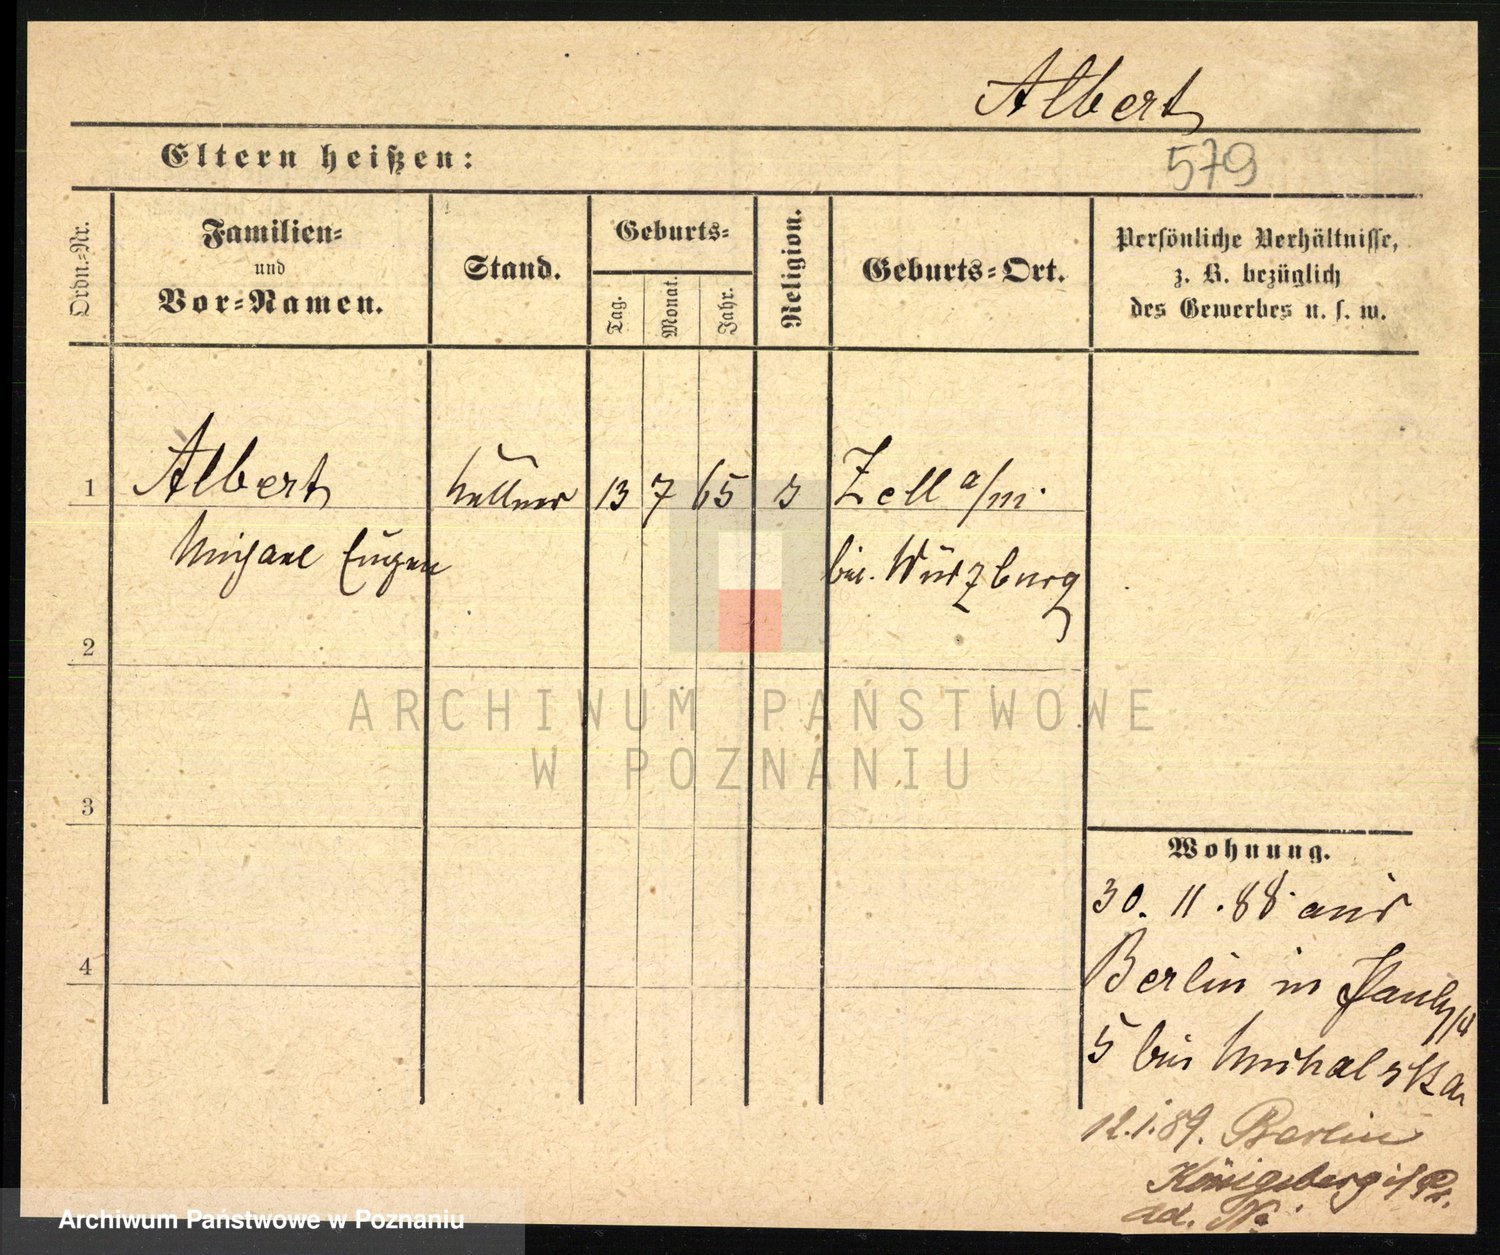 Albert
579
Eltern heißen:
Ordn.-Nr.
Familien-
und
Vor-Namen.
Stand.
Geburts-
Tag.
Monat.
Jahr.
Religion.
Geburts-Ort.
Persönliche Verhältnisse,
z. B. bezüglich
des Gewerbes u. s. w.
1
Albert
Kellner
13
7
65
Zell a/m.
Eugen
bei Würzburg
2
ARCHIWUM PAŃSTWOWE
W POZNANIU
3
Wohnung.
30. 11. 88 aus
Berlin in
4
5 bei Michalska
12.1.89. Berlin
Königsberg i/Pr.
Archiwum Państwowe w Poznaniu